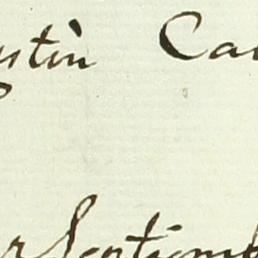 ustin Ca
r Septemb